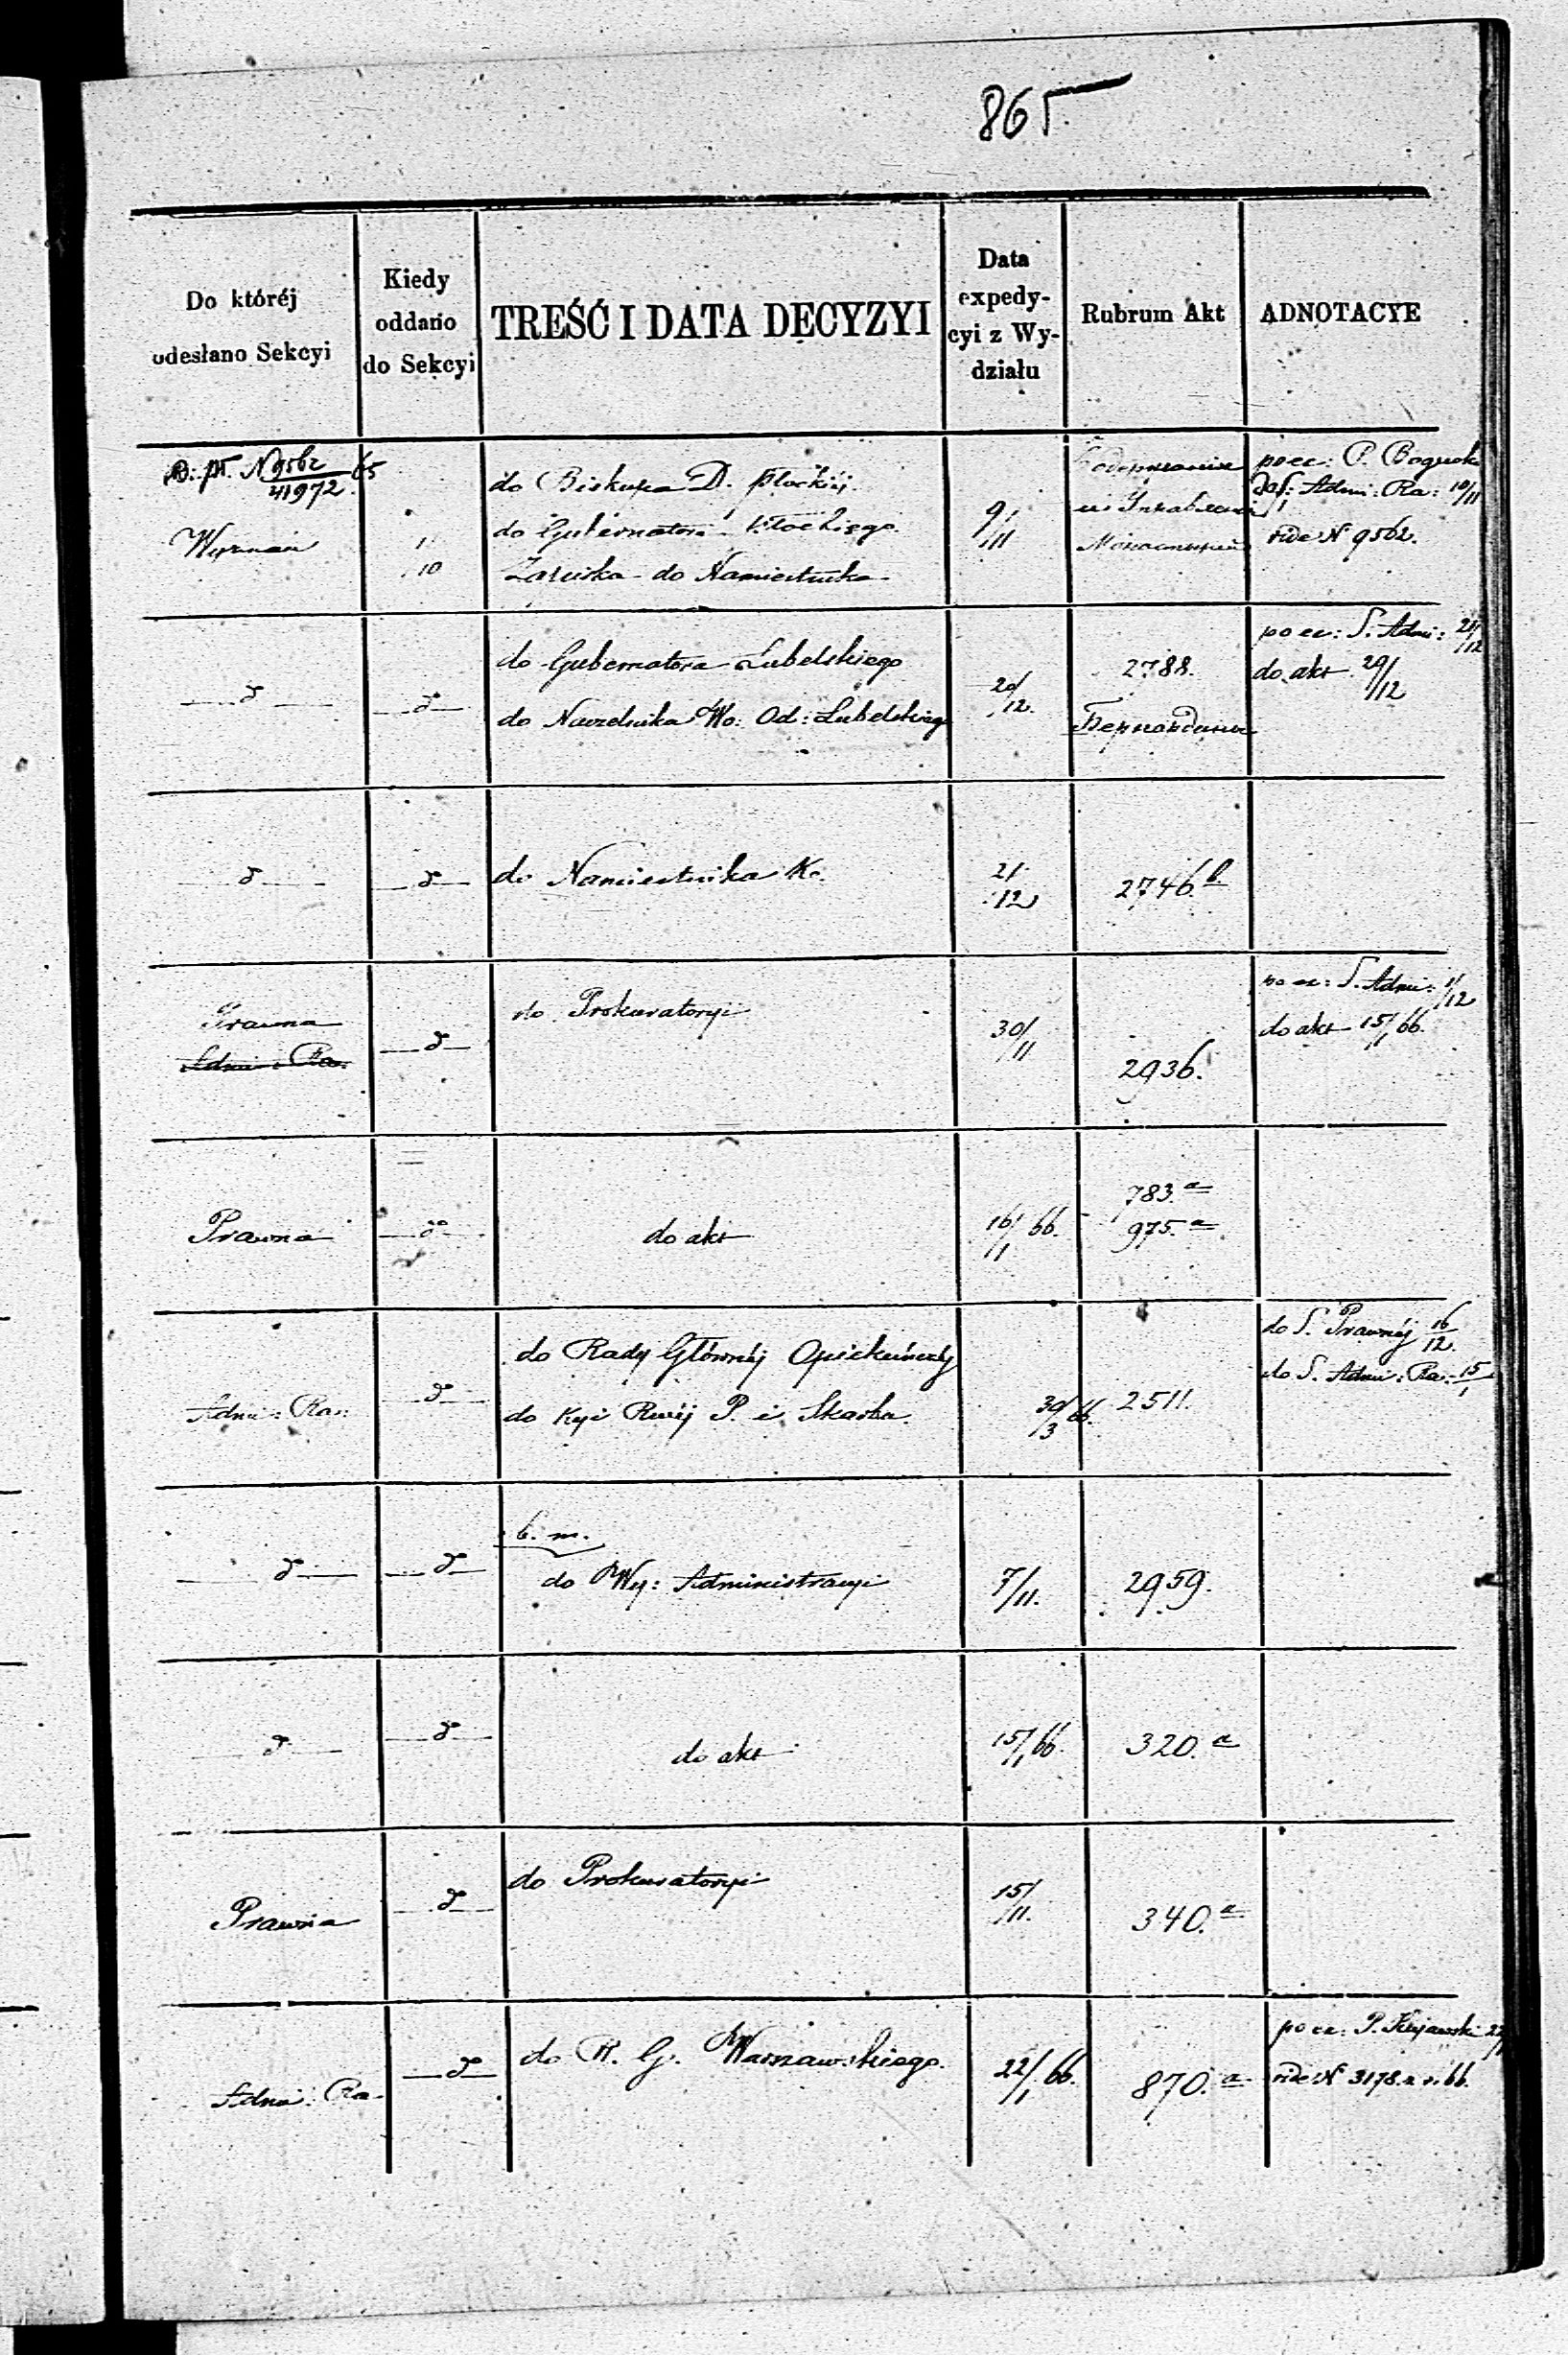 865
Do któréj
odesłano Sekcyi
Kiedy
oddano
do Sekcyi
TREŚĆ I DATA DECYZYI
Data
expedy-
cyi z Wy-
działu
Rubrum Akt
ADNOTACYE
N 9562/41972 65
Wyznań
1/10
do Biskupa D. Płockiéj
do Gubernatora Płockiego
do Namiestnika
9/11
po ec: P. Bogucki
Adm: Ra: 10/11
vide N 9562.
do
do
do Gubernatora Lubelskiego
do Naczelnika Wo: Od: Lubelskiego
20/12.
2788.
Бернардини
po ec: S. Adm: 21/12
do akt 29/12
do
do
do Namiestnika Kr.
21/12
2746 b
Prawna
Adm: Ra:
do
do Prokuratoryi
30/11
2936.
po ec: S. Adm: 1/12
do akt 15/1 66.
Prawna
do
do akt
16/1 66.
783. a
975. a
Adm: Ra:
do
do Rady Głównéj Opiekuńczéj
do Kyi Rwéj P. i Skarbu
30/3 66.
2511.
do S. Prawnéj 16/12.
do S. Adm: Ra: 15/1
do
do
b. m.
do Wy: Administracyi
7/11.
2959.
do
do
do akt
15/1 66.
320. a
Prawna
do
do Prokuratoryi
15/11.
340. a
Adm: Ra.
do
do R. G. Warszawskiego.
22/1 66.
870. a
po ec: P. Kujawski
vide N 3178. a r. 66.